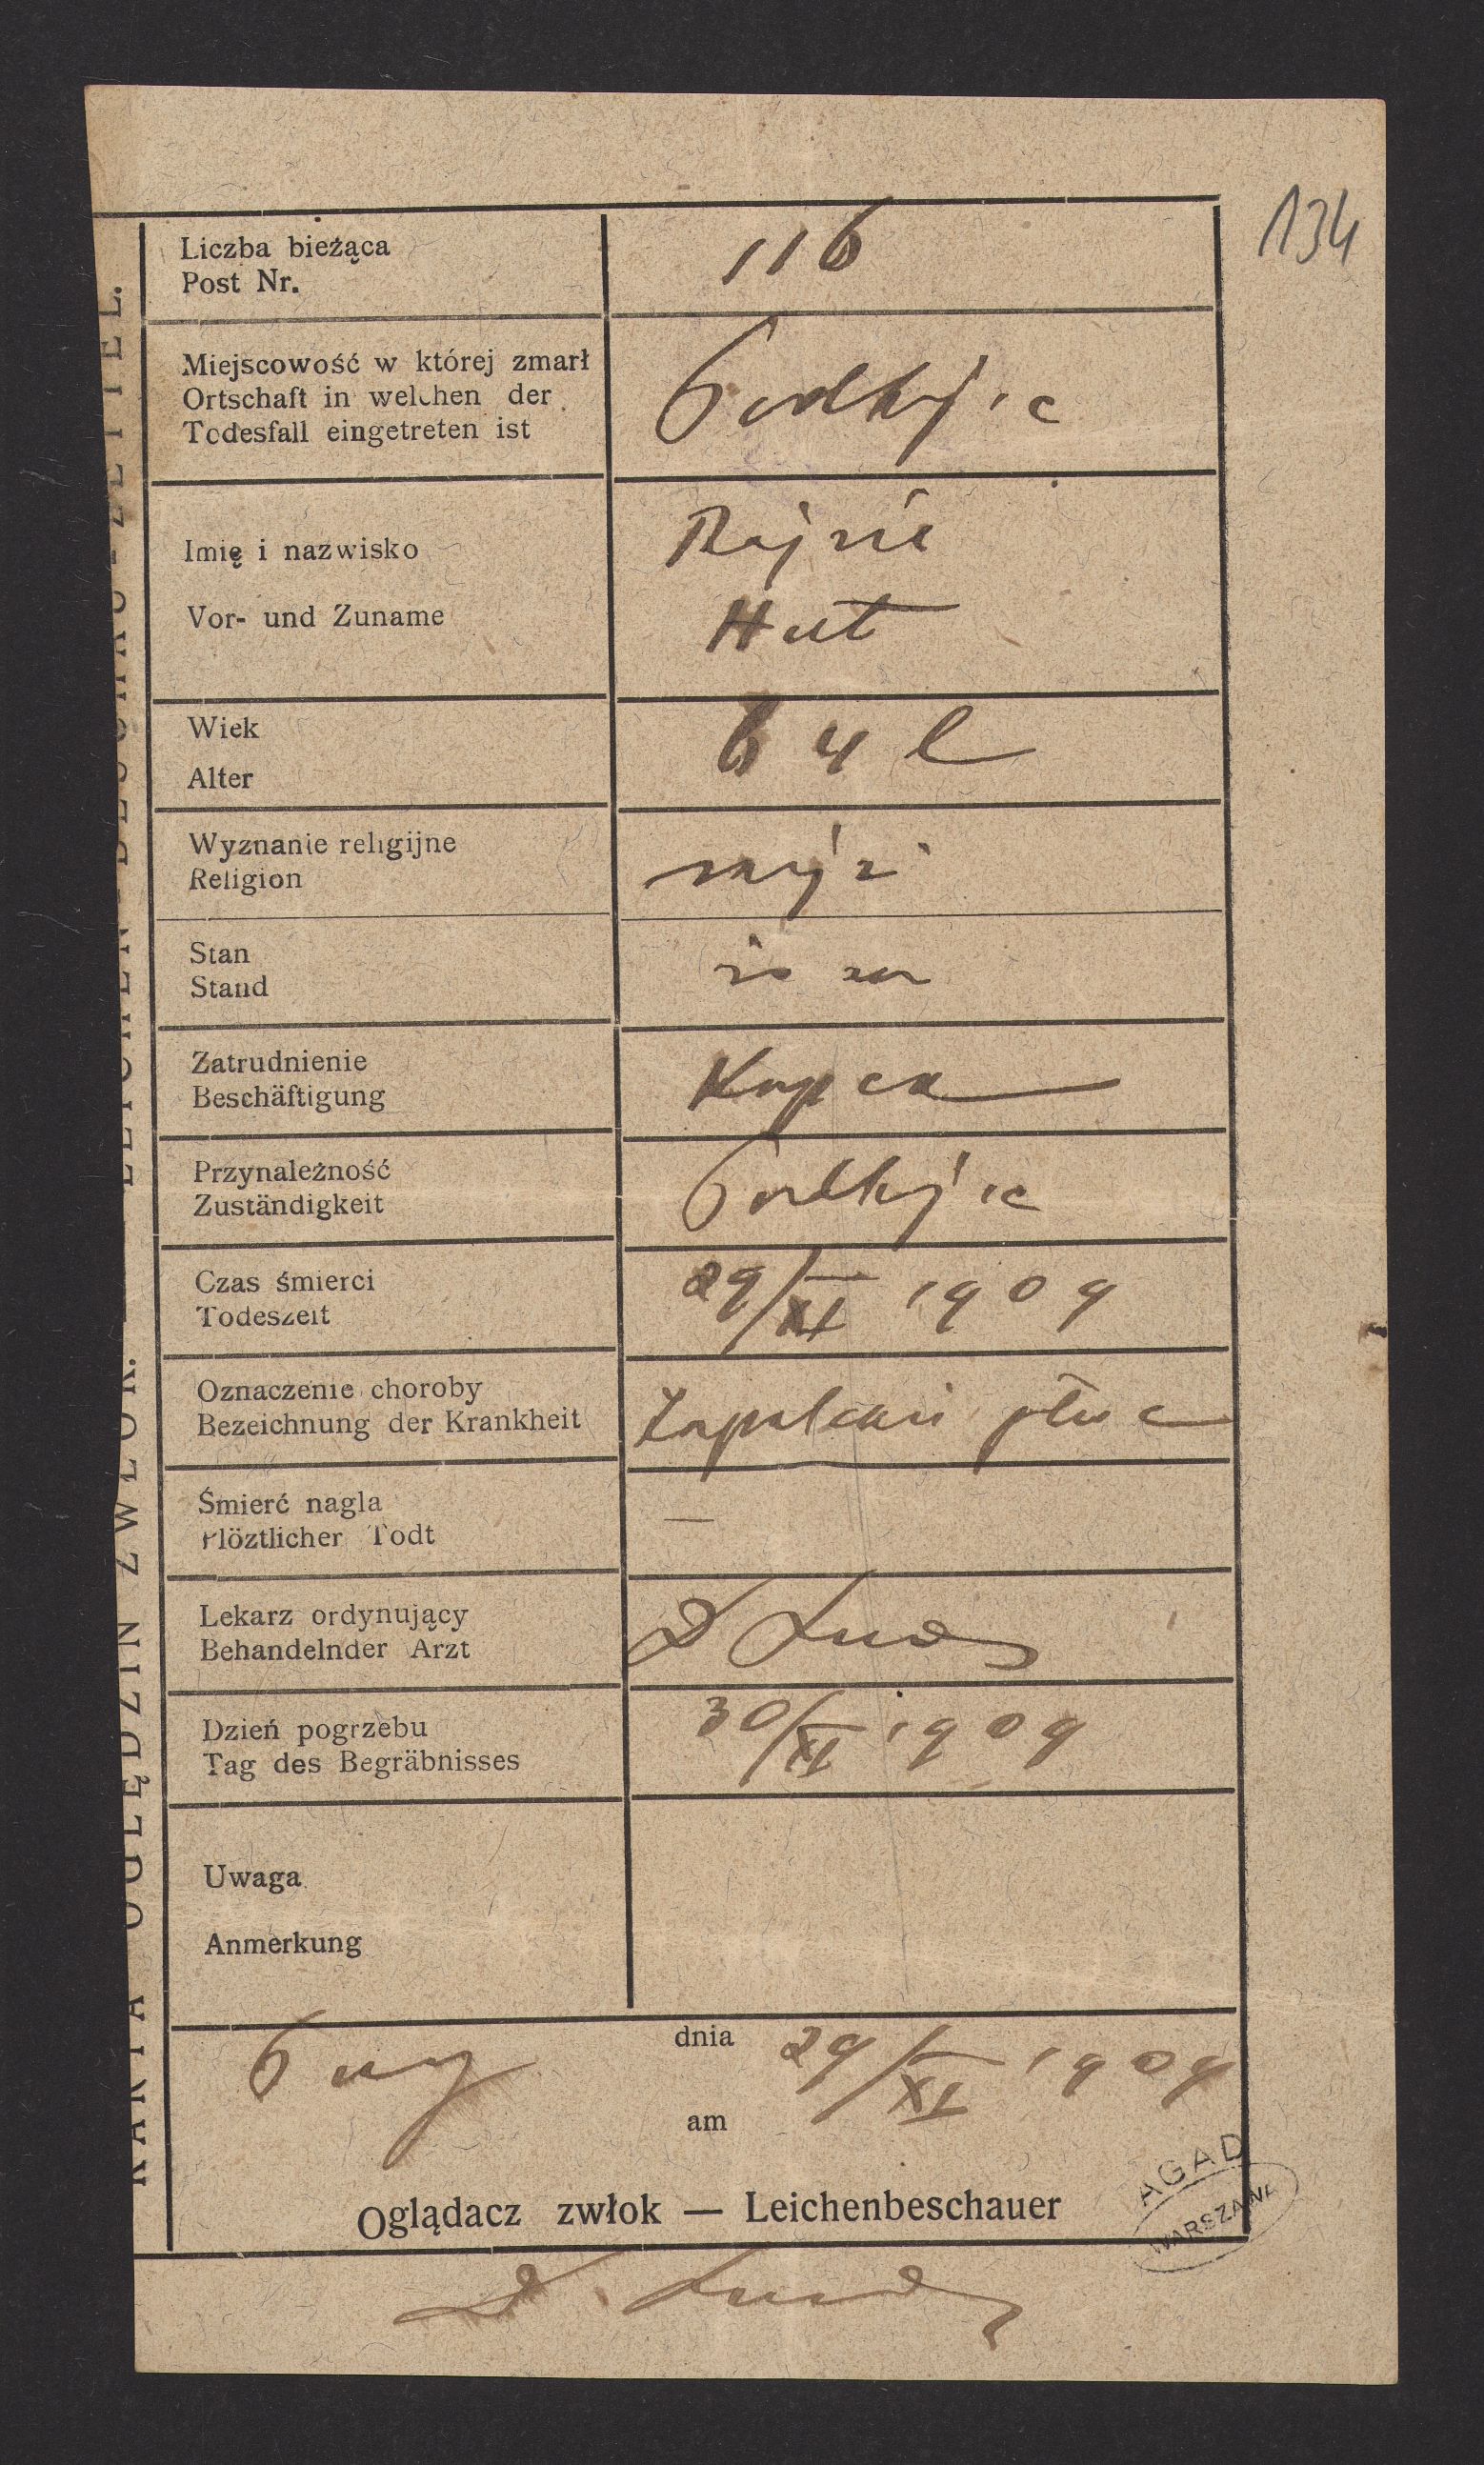 134
Liczba bieżąca
Post Nr.
116
Miejscowość w której zmarł
Ortschaft in welchen der
Todesfall eingetreten ist
Podhajce
Imię i nazwisko
Vor- und Zuname
Hut
Wiek
Alter
64 l
Wyznanie religijne
Religion
mojż
Stan
Stand
Zatrudnienie
Beschäftigung
Przynależność
Zuständigkeit
Podhajce
Czas śmierci
Todeszeit
29/XI 1909
Oznaczenie choroby
Bezeichnung der Krankheit
Zapalenie płuc
Śmierć nagla
Plöztlicher Todt
—
Lekarz ordynujący
Behandelnder Arzt
D
Dzień pogrzebu
Tag des Begräbnisses
30/XI 1909
Uwaga
Anmerkung
dnia
29/XI 1909
am
Oglądacz zwłok — Leichenbeschauer
AGAD
WARSZAWA
KARTA OGLĘDZIN ZWŁOK. — LEICHEN-BESCHAU-ZETTEL.